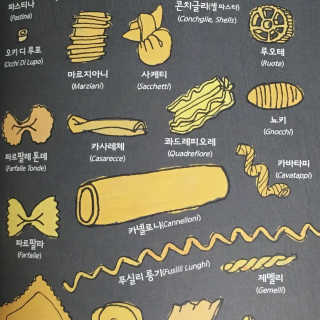 파스티나
(Pastina)
콘치글리(쉘 파스타)
(Conchglie, Shells)
오키 디 루포
(Occhi Di Lupo)
마르지아니
(Marziani)
사케티
(Sacchetti)
루오테
(Ruote)
뇨키
(Gnocchi)
파르팔레 톤데
(Farfalle Tonde)
카사레체
(Casarecce)
콰드레피오레
(Quadrefiore)
카바타피
(Cavatappi)
파르팔라
(Farfalle)
카넬로니(Cannelloni)
푸실리 룽기(Fusilli Lunghi)
제멜리
(Gemelli)